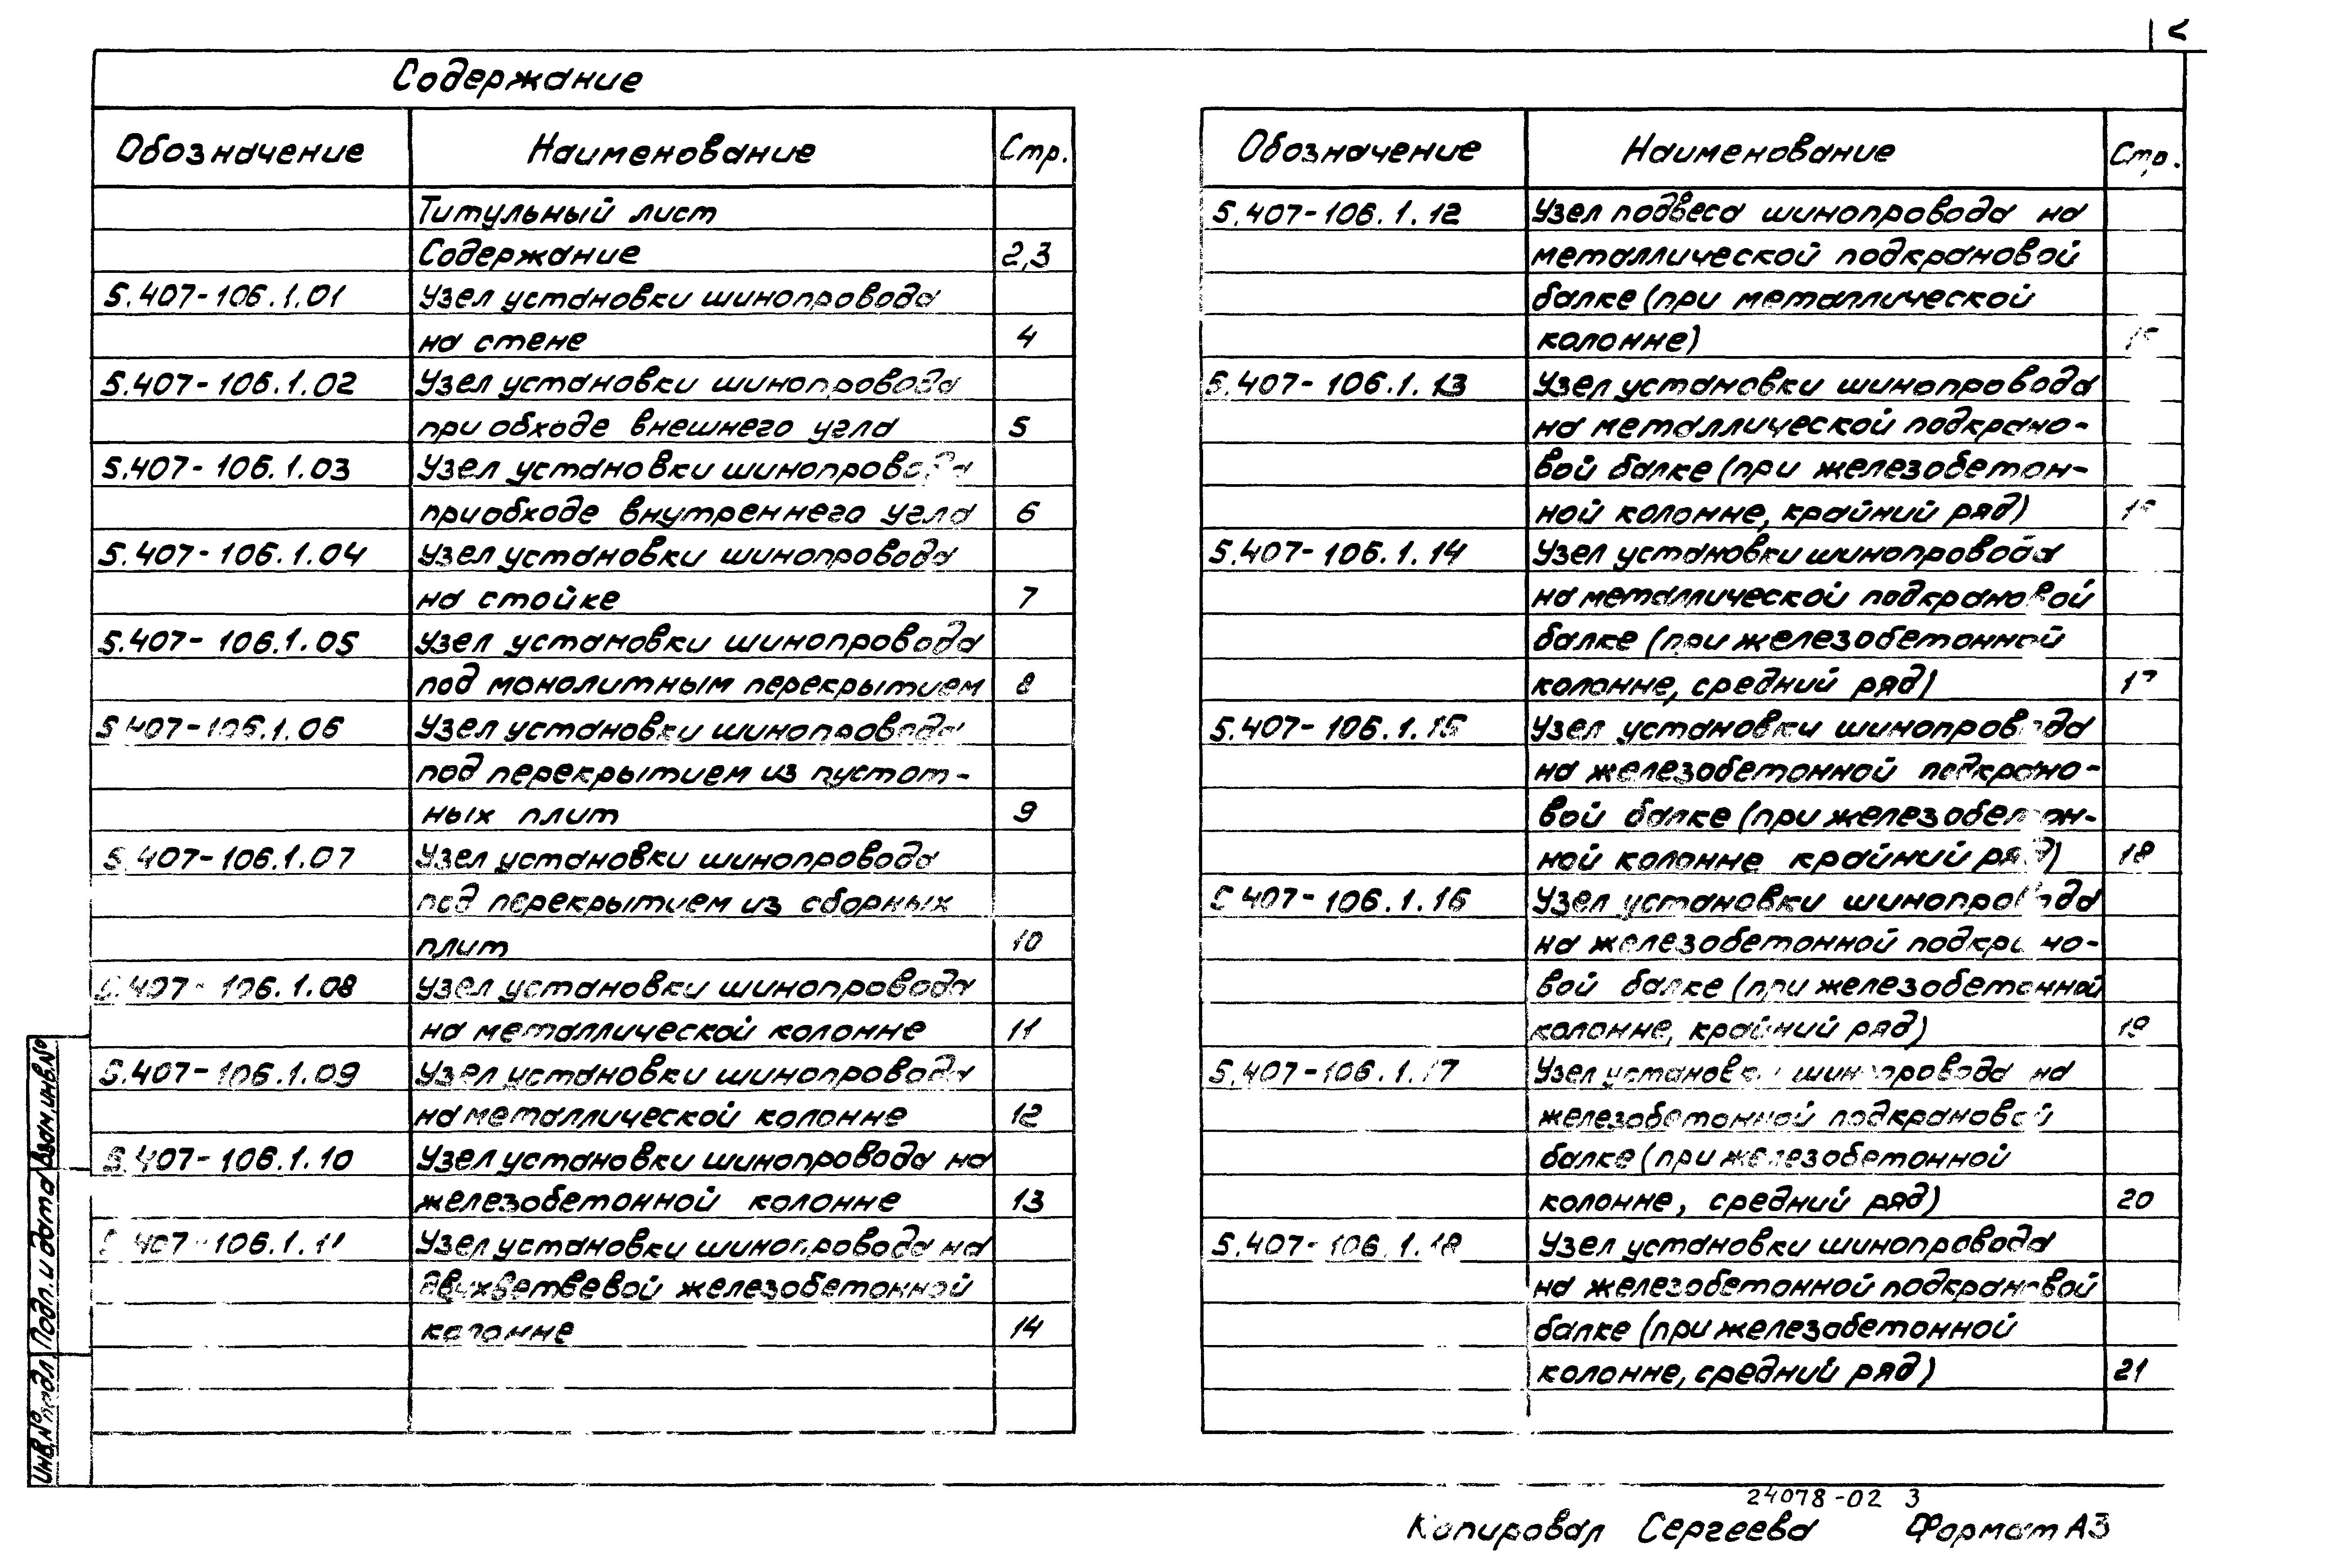 2
Содержание
Обозначение Наименование Стр.
Титульный лист
Содержание 2,3
5.407-106.1.01 Узел установки шинопровода
на стене 4
5.407-106.1.02 Узел установки шинопровода
при обходе внешнего угла 5
5.407-106.1.03 Узел установки шинопровода
при обходе внутреннего угла 6
5.407-106.1.04 Узел установки шинопровода
на стойке 7
5.407-106.1.05 Узел установки шинопровода
под монолитным перекрытием 8
5.407-106.1.06 Узел установки шинопровода
под перекрытием из пустот-
ных плит 9
5.407-106.1.07 Узел установки шинопровода
под перекрытием из сборных
плит 10
5.407-106.1.08 Узел установки шинопровода
на металлической колонне 11
5.407-106.1.09 Узел установки шинопровода
на металлической колонне 12
5.407-106.1.10 Узел установки шинопровода на
железобетонной колонне 13
5.407-106.1.11 Узел установки шинопровода на
двухветвевой железобетонной
колонне 14
Обозначение Наименование Стр.
5.407-106.1.12 Узел подвеса шинопровода на
металлической подкрановой
балке (при металлической
колонне)
5.407-106.1.13 Узел установки шинопровода
на металлической подкрано-
вой балке (при железобетон-
ной колонне, крайний ряд)
5.407-106.1.14 Узел установки шинопровода
на металлической подкрановой
балке (при железобетонной
колонне, средний ряд) 17
5.407-106.1.15 Узел установки шинопровода
на железобетонной подкрано-
вой балке (при железобетон-
ной колонне крайний ряд) 18
5.407-106.1.16 Узел установки шинопровода
на железобетонной подкрано-
вой балке (при железобетонной
колонне, крайний ряд) 19
5.407-106.1.17 Узел установки шинопровода на
железобетонной подкрановой
балке (при железобетонной
колонне, средний ряд) 20
5.407-106.1.18 Узел установки шинопровода
на железобетонной подкрановой
балке (при железобетонной
колонне, средний ряд) 21
Инв.№ подл. Подп. и дата Взам.инв.№
24078-02 3
Копировал Сергеева Формат А3